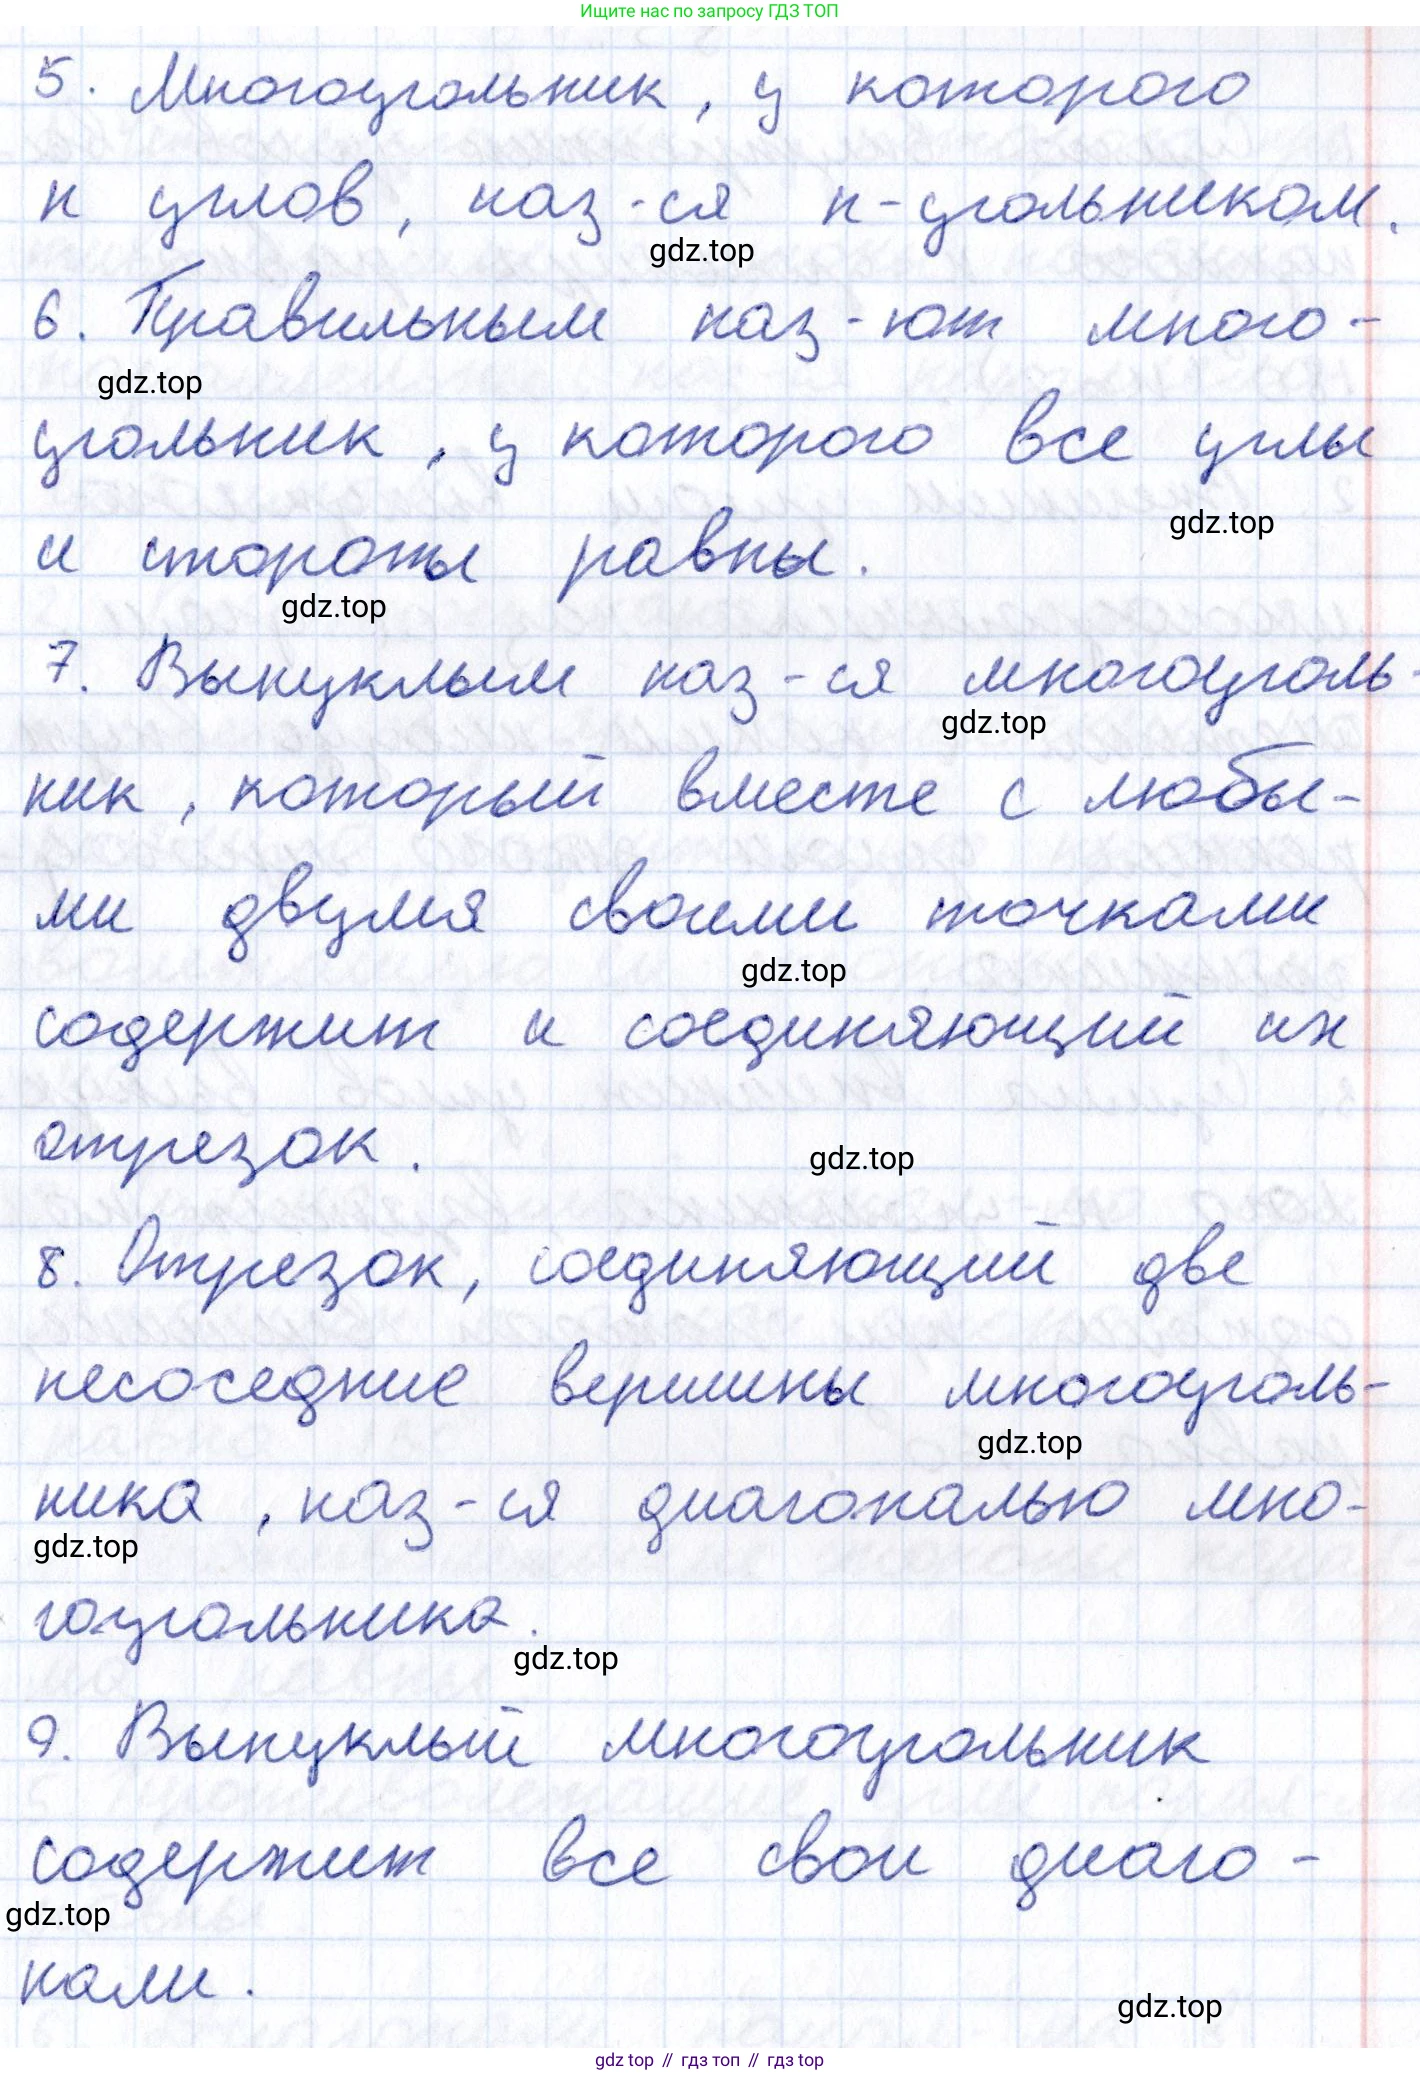 Ищите нас по запросу ГДЗ ТОП
5. Многоугольник, у которого
n углов, наз-ся n-угольником.
gdz.top
6. Правильным наз-ют много-
gdz.top
угольник, у которого все углы
gdz.top
и стороны равны.
gdz.top
7. Выпуклым наз-ся многоуголь-
gdz.top
ник, который вместе с любы-
ми двумя своими точками
gdz.top
содержит и соединяющий их
отрезок.
gdz.top
8. Отрезок, соединяющий две
несоседние вершины многоуголь-
gdz.top
ника, наз-ся диагональю мно-
gdz.top
гоугольника.
gdz.top
9. Выпуклый многоугольник
содержит все свои диаго-
gdz.top
нали.
gdz.top
gdz top // гдз топ // гдз top